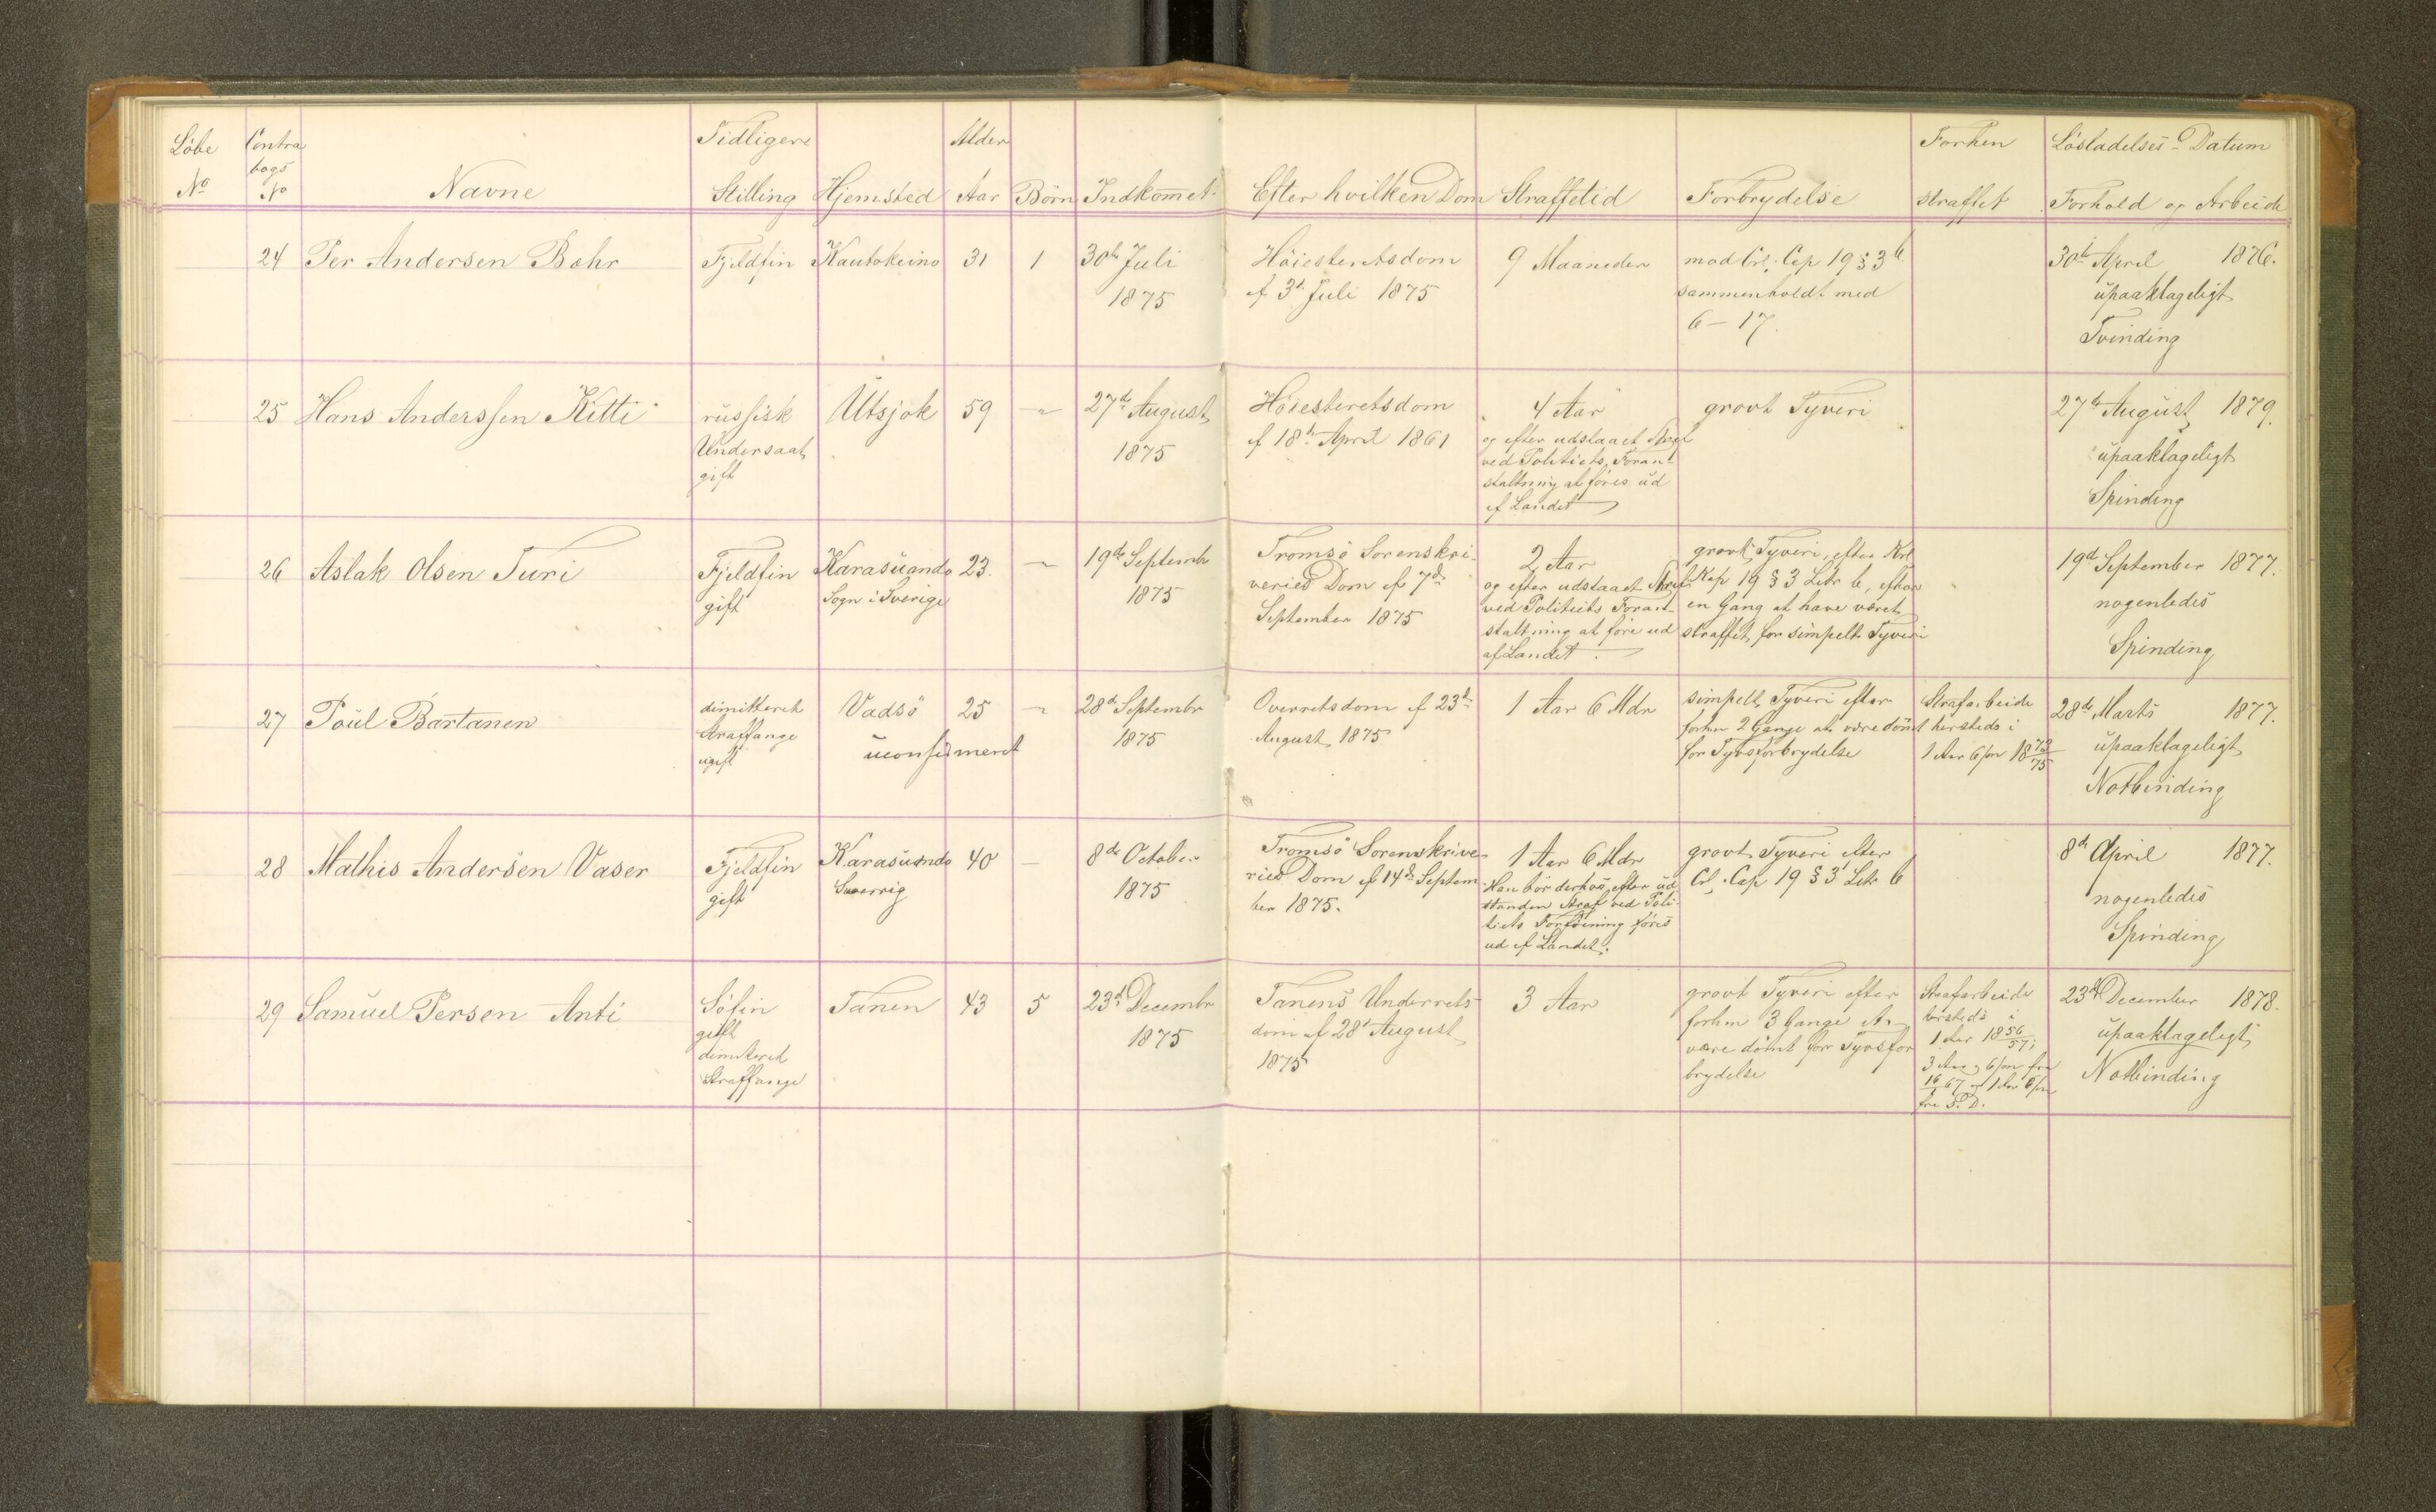 Løbe No
Contra bogs No
Navne
Tidligere Stilling
Hjemsted
Alder Aar
Børn
Indkommet
Efter hvilken Dom
Straffetid
Forbrydelse
Forhen straffet
Løsladelses-Datum
Forhold og Arbeide
24 Per Andersen Bæhr
Fjeldfin
Kautokeino
31
1
30te Juli
1875
Høiesteretsdom
af 3d Juli 1875
9 Maaneder
mod Crl. Cap 19 § 3 b
sammenholdt med
6 – 17.
30te April 1876.
upaaklageligt
Tvinding
25 Hans Anderssen Kitti
russisk
Undersaat
gift
Utsjok
59
–
27de August
1875
Høiesteretsdom
af 18de April 1861
4 Aar
og efter udstaaet Straf
ved Politiets Foran-
staltning at føres ud
af Landet
grovt Tyveri
27de August 1879.
upaaklageligt
Spinding
26 Aslak Olsen Turi
Fjeldfin
gift
Karasuando
Sogn i Sverige
23.
–
19de Septembr
1875
Tromsø Sorenskri-
veries Dom af 7de
September 1875
2 Aar
og efter udstaaet Straf
ved Politiets Foran-
staltning at føre ud
af Landet.
grovt Tyveri, efter Krl
Kap 19 § 3 Litr b, efter
en Gang at have været
straffet for simpelt Tyveri
19d September 1877.
nogenledes
Spinding
27 Paul Bartanen
dimitteret
Straffange
ugift
Vadsø
uconfirmeret
25
–
28de Septembr
1875
Overretsdom af 23de
August 1875
1 Aar 6 Mdr
simpelt Tyveri efter
forhen 2 Gange at være dømt
for Tyvsforbrydelse
Strafarbeide
hersteds i
1 Aar 6 Mn 18 73/75
28de Marts 1877.
upaaklageligt
Notbinding
28 Mathis Andersen Vaser
Fjeldfin
gift
Karasuando
Sverrig
40
–
8de October
1875
Tromsø Sorenskrive-
ries Dom af 14de Septem
ber 1875.
1 Aar 6 Mdr
Han bør derhos efter ud
standen Straf ved Poli-
tiets Forføining føres
ud af Landet.
grovt Tyveri efter
Crl. Cap 19 § 3 Litr b
8de April 1877.
nogenledes
Spinding
29 Samuel Persen Anti
Søfin
gift
dimitteret
Straffange
Tanen
43
5
23de Decembr
1875
Tanens Underrets
dom af 28de August
1875
3 Aar
grovt Tyveri efter
forhen 3 Gange at
være dømt for Tyvsfor
brydelse
Strafarbeide
hersteds i
1 Aar 18 56/57;
3 Aar og 6 Mn fra
67 og 1 Aar 6 Mn
fra S. D.
23de December 1878.
upaaklageligt
Notbinding